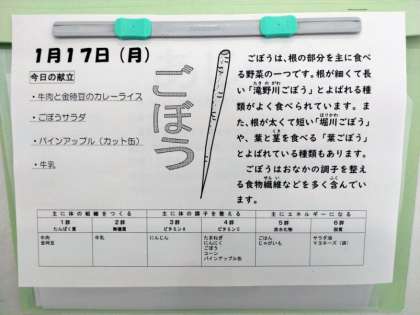 1月17日（月）
今日の献立
・牛肉と金時豆のカレーライス
・ごぼうサラダ
・パインアップル（カット缶）
・牛乳
ごぼう
ごぼうは、根の部分を主に食べ
る野菜の一つです。根が細くて長
い「滝野川ごぼう」とよばれる種
類がよく食べられています。ま
た、根が太くて短い「堀川ごぼう」
や、葉と茎を食べる「葉ごぼう」
とよばれている種類もあります。
ごぼうはおなかの調子を整え
る食物繊維などを多く含んでい
ます。
主に体の組織をつくる 主に体の調子を整える 主にエネルギーになる
1群 2群 3群 4群 5群 6群
たんぱく質 無機質 ビタミンA ビタミンC 炭水化物 脂質
牛肉 牛乳 にんじん たまねぎ ごはん サラダ油
金時豆 にんにく じゃがいも マヨネーズ（卵）
ごぼう
コーン
パインアップル缶